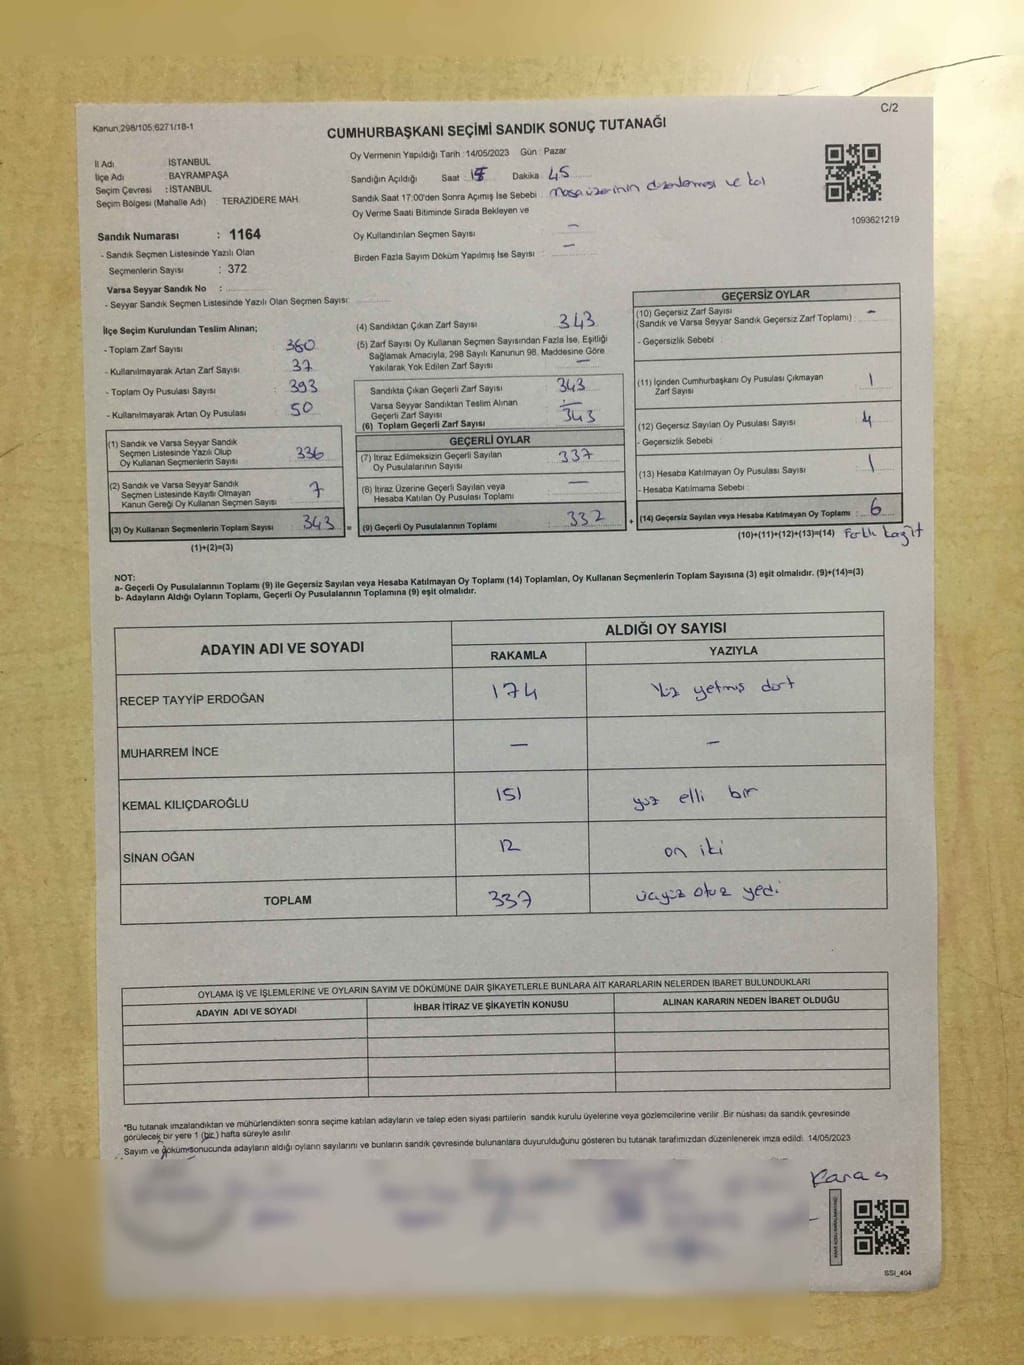 C/2
Kanun,298/105;6271/18-1
CUMHURBAŞKANI SEÇİMİ SANDIK SONUÇ TUTANAĞI
İl Adı İSTANBUL
İlçe Adı BAYRAMPAŞA
Seçim Çevresi : İSTANBUL
Seçim Bölgesi (Mahalle Adı) TERAZİDERE MAH.
Oy Vermenin Yapıldığı Tarih : 14/05/2023 Gün : Pazar
Sandığın Açıldığı Saat : Dakika : 45
Sandık Saat 17:00'den Sonra Açımış İse Sebebi : masa üzerinin düzenlemesi ve
Oy Verme Saati Bitiminde Sırada Bekleyen ve
Oy Kullandırılan Seçmen Sayısı : —
Birden Fazla Sayım Döküm Yapılmış İse Sayısı : —
1093621219
Sandık Numarası : 1164
- Sandık Seçmen Listesinde Yazılı Olan
Seçmenlerin Sayısı : 372
Varsa Seyyar Sandık No :
- Seyyar Sandık Seçmen Listesinde Yazılı Olan Seçmen Sayısı:
İlçe Seçim Kurulundan Teslim Alınan;
- Toplam Zarf Sayısı 360
- Kullanılmayarak Artan Zarf Sayısı : 37
- Toplam Oy Pusulası Sayısı : 393
- Kullanılmayarak Artan Oy Pusulası : 50
(1) Sandık ve Varsa Seyyar Sandık
Seçmen Listesinde Yazılı Olup
Oy Kullanan Seçmenlerin Sayısı 336
(2) Sandık ve Varsa Seyyar Sandık
Seçmen Listesinde Kayıtlı Olmayan
Kanun Gereği Oy Kullanan Seçmen Sayısı 7
(3) Oy Kullanan Seçmenlerin Toplam Sayısı 343 =
(1)+(2)=(3)
(4) Sandıktan Çıkan Zarf Sayısı 343
(5) Zarf Sayısı Oy Kullanan Seçmen Sayısından Fazla İse, Eşitliği
Sağlamak Amacıyla, 298 Sayılı Kanunun 98. Maddesine Göre
Yakılarak Yok Edilen Zarf Sayısı —
Sandıkta Çıkan Geçerli Zarf Sayısı 343
Varsa Seyyar Sandıktan Teslim Alınan
Geçerli Zarf Sayısı —
(6) Toplam Geçerli Zarf Sayısı 343
GEÇERLİ OYLAR
(7) İtiraz Edilmeksizin Geçerli Sayılan
Oy Pusulalarının Sayısı 337
(8) İtiraz Üzerine Geçerli Sayılan veya
Hesaba Katılan Oy Pusulası Toplamı —
(9) Geçerli Oy Pusulalarının Toplamı 337 +
GEÇERSİZ OYLAR
(10) Geçersiz Zarf Sayısı
(Sandık ve Varsa Seyyar Sandık Geçersiz Zarf Toplamı) : —
- Geçersizlik Sebebi :
(11) İçinden Cumhurbaşkanı Oy Pusulası Çıkmayan
Zarf Sayısı 1
(12) Geçersiz Sayılan Oy Pusulası Sayısı 4
- Geçersizlik Sebebi :
(13) Hesaba Katılmayan Oy Pusulası Sayısı : 1
- Hesaba Katılmama Sebebi :
(14) Geçersiz Sayılan veya Hesaba Katılmayan Oy Toplamı : 6
(10)+(11)+(12)+(13)=(14) Farklı kağıt
NOT:
a- Geçerli Oy Pusulalarının Toplamı (9) ile Geçersiz Sayılan veya Hesaba Katılmayan Oy Toplamı (14) Toplamları, Oy Kullanan Seçmenlerin Toplam Sayısına (3) eşit olmalıdır. (9)+(14)=(3)
b- Adayların Aldığı Oyların Toplamı, Geçerli Oy Pusulalarının Toplamına (9) eşit olmalıdır.
ADAYIN ADI VE SOYADI
ALDIĞI OY SAYISI
RAKAMLA YAZIYLA
RECEP TAYYİP ERDOĞAN 174 Yüz yetmiş dört
MUHARREM İNCE — —
KEMAL KILIÇDAROĞLU 151 yüz elli bir
SİNAN OĞAN 12 on iki
TOPLAM 337 üçyüz otuz yedi
OYLAMA İŞ VE İŞLEMLERİNE VE OYLARIN SAYIM VE DÖKÜMÜNE DAİR ŞİKAYETLERLE BUNLARA AİT KARARLARIN NELERDEN İBARET BULUNDUKLARI
ADAYIN ADI VE SOYADI İHBAR İTİRAZ VE ŞİKAYETİN KONUSU ALINAN KARARIN NEDEN İBARET OLDUĞU
*Bu tutanak imzalandıktan ve mühürlendikten sonra seçime katılan adayların ve talep eden siyasi partilerin sandık kurulu üyelerine veya gözlemcilerine verilir. Bir nüshası da sandık çevresinde
görülecek bir yere 1 (bir) hafta süreyle asılır.
Sayım ve döküm sonucunda adayların aldığı oyların sayılarını ve bunların sandık çevresinde bulunanlara duyurulduğunu gösteren bu tutanak tarafımızdan düzenlenerek imza edildi. 14/05/2023
SSI_404